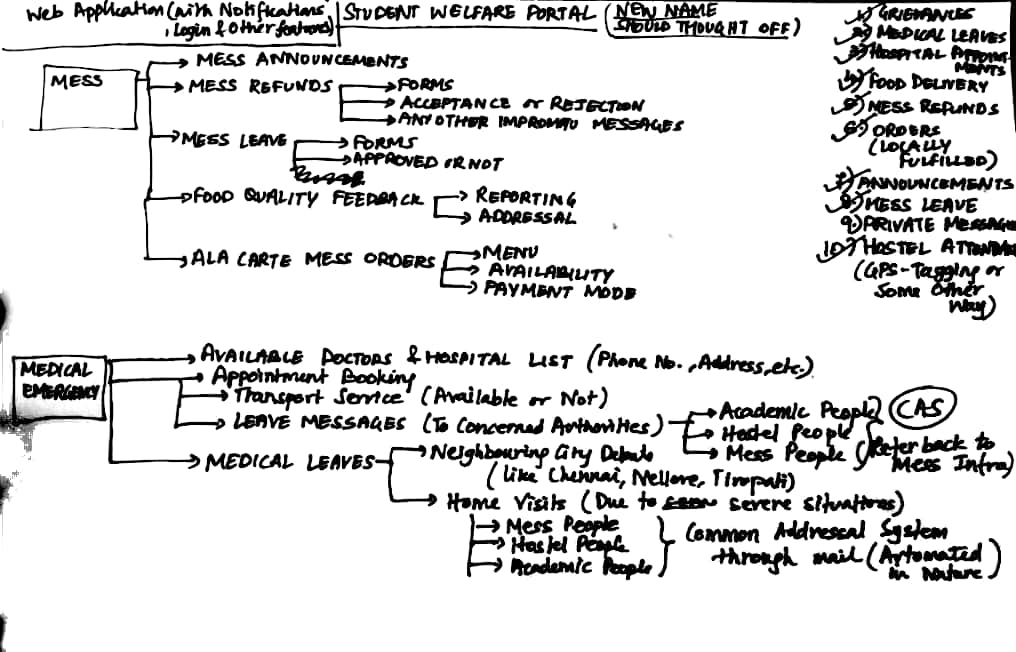 Web Application (with Notifications, Login & Other features)
STUDENT WELFARE PORTAL (NEW NAME SHOULD THOUGHT OFF)
MESS
MESS ANNOUNCEMENTS
MESS REFUNDS
FORMS
ACCEPTANCE or REJECTION
ANY OTHER IMPROMTU MESSAGES
MESS LEAVE
FORMS
APPROVED OR NOT
FOOD QUALITY FEEDBACK
REPORTING
ADDRESSAL
ALA CARTE MESS ORDERS
MENU
AVAILABILITY
PAYMENT MODE
1) GRIEVANCES
2) MEDICAL LEAVES
3) HOSPITAL APPOINTMENTS
4) FOOD DELIVERY
5) MESS REFUNDS
6) ORDERS
(LOCALLY
FULFILLED)
7) ANNOUNCEMENTS
8) MESS LEAVE
9) PRIVATE MESSAGE
10) HOSTEL
(GPS-Tagging or
Some Other
Way)
MEDICAL
EMERGENCY
AVAILABLE DOCTORS & HOSPITAL LIST (Phone No., Address, etc.)
Appointment Booking
Transport Service (Available or Not)
LEAVE MESSAGES (To Concerned Authorities)
Academic People
Hostel People
Mess People
CAS
(Refer back to
Mess Infra)
MEDICAL LEAVES
Neighbouring City
(like Chennai, Nellore, Tirupati)
Home Visits (Due to severe situations)
Mess People
Hostel People
Academic People
Common Addressal System
through mail (Automated
in Nature)